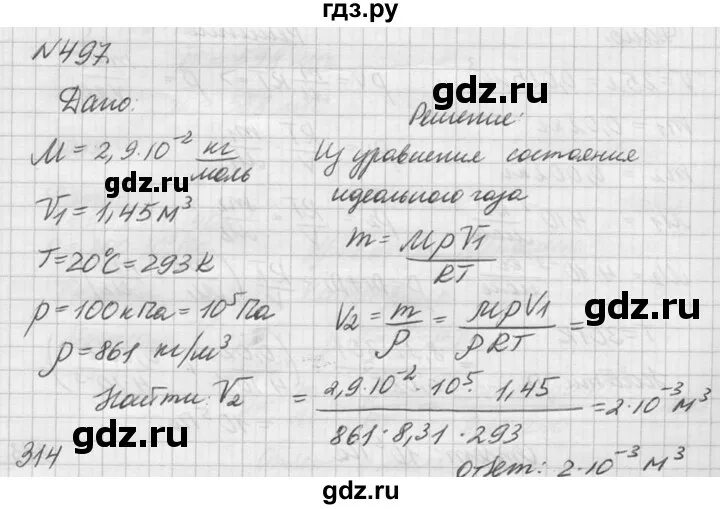 гдз.ру
N497.
Дано:
M = 2,9·10⁻² кг/моль
V₁ = 1,45 м³
T = 20°C = 293 К
p = 100 кПа = 10⁵ Па
ρ = 861 кг/м³
Найти: V₂
314
Решение:
Из уравнение состояние
идеального газа
m = MpV₁/RT
V₂ = m/ρ = MpV₁/ρRT =
= 2,9·10⁻²·10⁵·1,45/861·8,31·293 = 2·10⁻³ м³
ответ: 2·10⁻³ м³
gdz.ru
gdz.ru
gdz.ru
gdz.ru
gdz.ru
gdz.ru
gdz.ru
gdz.ru
gdz.ru